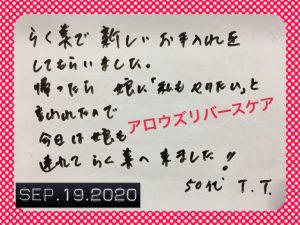 らく葉で新しいお手入れを
してもらいました。
帰ったら娘に「私もやりたい」と
言われたので
アロウズリバースケア
今日は娘も
連れてらく葉へ来ました!!
50代 T.T.
SEP.19.2020